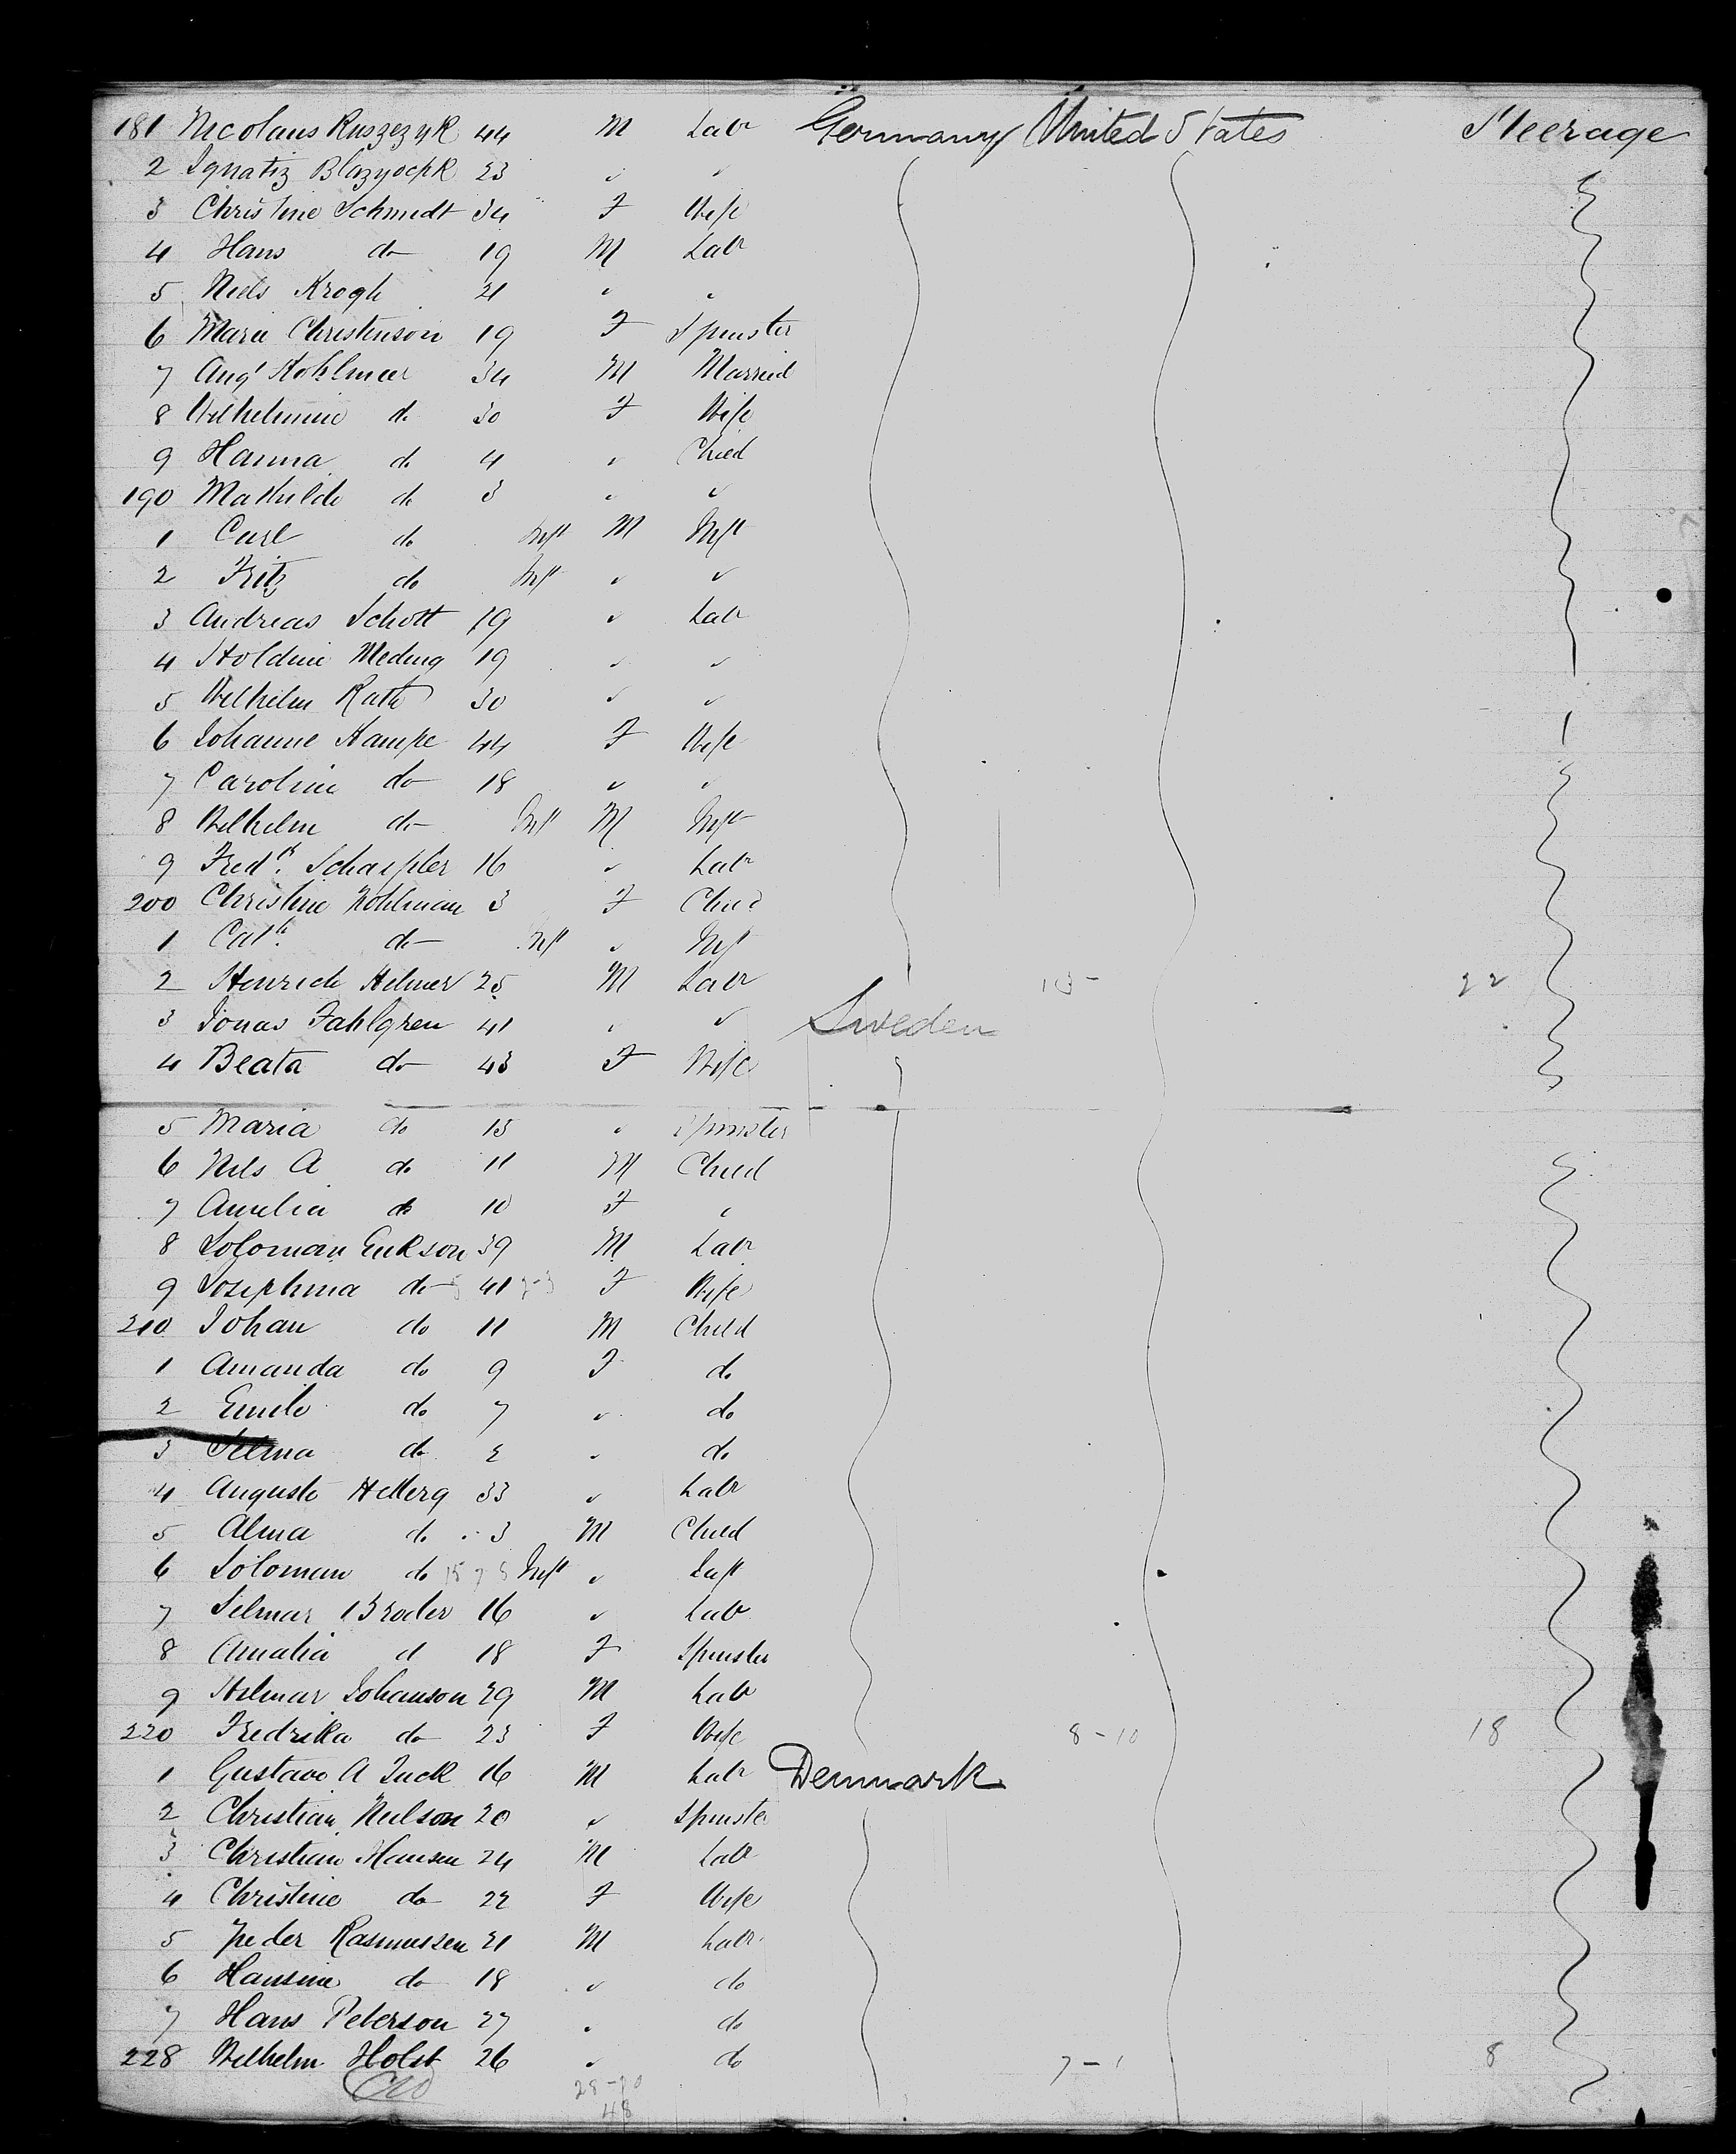 181 Nicolaus Ruszezyk 44 M Labr Germany United States Steerage
2 Ignatz 23 " "
3 Christine Schmidt 34 F Wife
4 Hans do 19 M Labr
5 Niels Krogh 21 " "
6 Marie Christenson 19 F Spinster
7 Augt Kohlmeer 34 M Married
8 Wilhelmine do 30 F Wife
9 Hanna do 4 " Child
190 Mathilde do 3 " "
1 Carl do Inft M Inft
2 Fritz do Inft " "
3 Andreas Schott 19 " Labr
4 Meding 19 " "
5 Wilhelm Rath 30 " "
6 Johanne Kampe 44 F Wife
7 Caroline do 18 " "
8 Wilhelm do Inft M Inft
9 Fredk. 16 " Labr
200 Christine Kohlman 3 F Child
1 Cath. do Inft " Inft
2 Henrich Helmer 25 M Labr 22
3 Jonas Fahlgren 41 " " Sweden
4 Beata do 43 F Wife
5 Maria do 15 " Spinster
6 Nils A do 11 M Child
7 Amelia do 10 F "
8 Soloman Erikson 39 M Labr
9 Josephina do 41 F Wife
210 Johan do 11 M Child
1 Amanda do 9 F do
2 Emile do 7 " do
3 Selma do 2 " do
4 Auguste Helberg 33 " Labr
5 Alma do 3 M Child
6 Soloman do Inft " Inft
7 Selmar Broder 16 " Labr
8 Amalia d 18 F Spinster
9 Hilmar Johanson 29 M Labr
220 Fredrika do 23 F Wife 8-10 18
1 Gustave A Juck 16 M Labr Denmark
2 Christian Neilson 20 " Spinster
3 Christian Hansen 24 M Labr
4 Christine do 22 F Wife
5 Peder Rasmussen 21 M Labr
6 Hansine do 18 " do
7 Hans Peterson 27 " do
228 Wilhelm Holst 26 " do 7-1 8
28-20
48